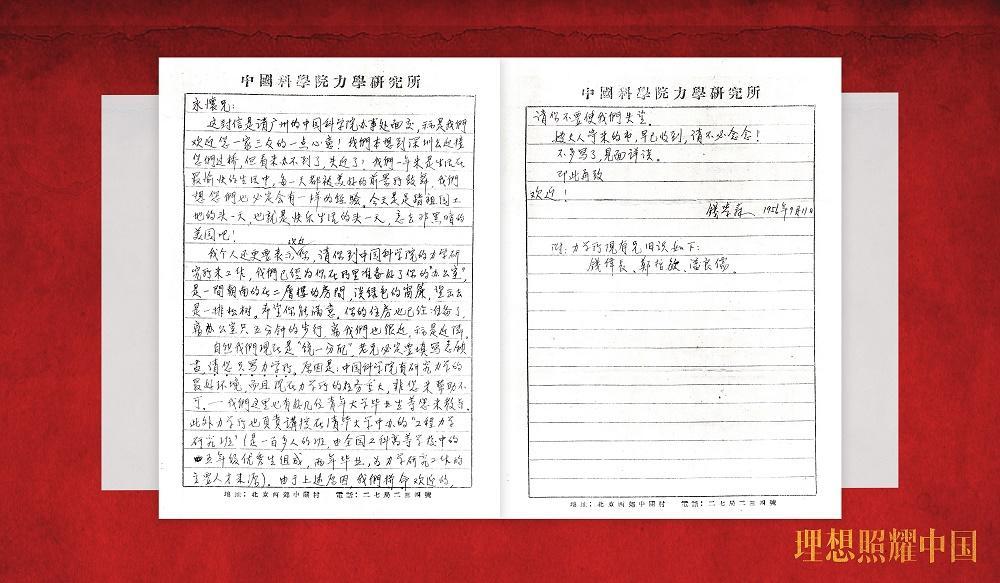 中國科學院力學研究所
永懷兄：
这封信是请广州的中国科学院办事处面交，算是我們
欢迎您一家三众的一点心意！我們本想到深圳去迎接
您們过桥，但看来办不到了，失迎了！我們一年来是生活在
最愉快的生活中，每一天都被美好的前景所鼓舞，我們
想您們也必定会有一样的经验。今天是足踏祖国土
地的头一天，也就是快乐生活的头一天，忘去那黑暗的
美国吧！
我个人还更要表示欢迎你，请你到中国科学院的力学研
究所来工作，我們已经为你在所里准备好了你的“办公室”，
是一間朝南的在二層樓的房間，淡绿色的窗簾，望出去
是一排松树。希望你能满意。你的住房也已经准备了，
离办公室只五分钟的步行，离我們也很近，算是近邻。
自然我們現在是“统一分配”，老兄必定要填写志愿
书，请您只写力学所。原因是：中国科学院有研究力学的
最好环境，而且现在力学所的任务重大，非您来帮助不
可。——我們这里也有好几位青年大学毕业生等您来教导。
此外力学所也負責講授在清华大学中办的“工程力学
研究班”（是一百多人的班，由全国工科高等学校中的
五年级优秀生组成，两年毕业，为力学研究工作的
主要人才来源）。由于上述原因，我們拼命欢迎的，
地址：北京西郊中關村 電話：二七局二三四號
中國科學院力學研究所
请你不要使我們失望。
嫂夫人寄来的书，早已收到，请不必念念！
不多写了，见面详谈。
即此再致
欢迎！
钱学森 1956年9月11日
附：力学所现有兄旧识如下：
钱偉長，鄭哲敏，潘良儒。
地址：北京西郊中關村 電話：二七局二三四號
理想照耀中国